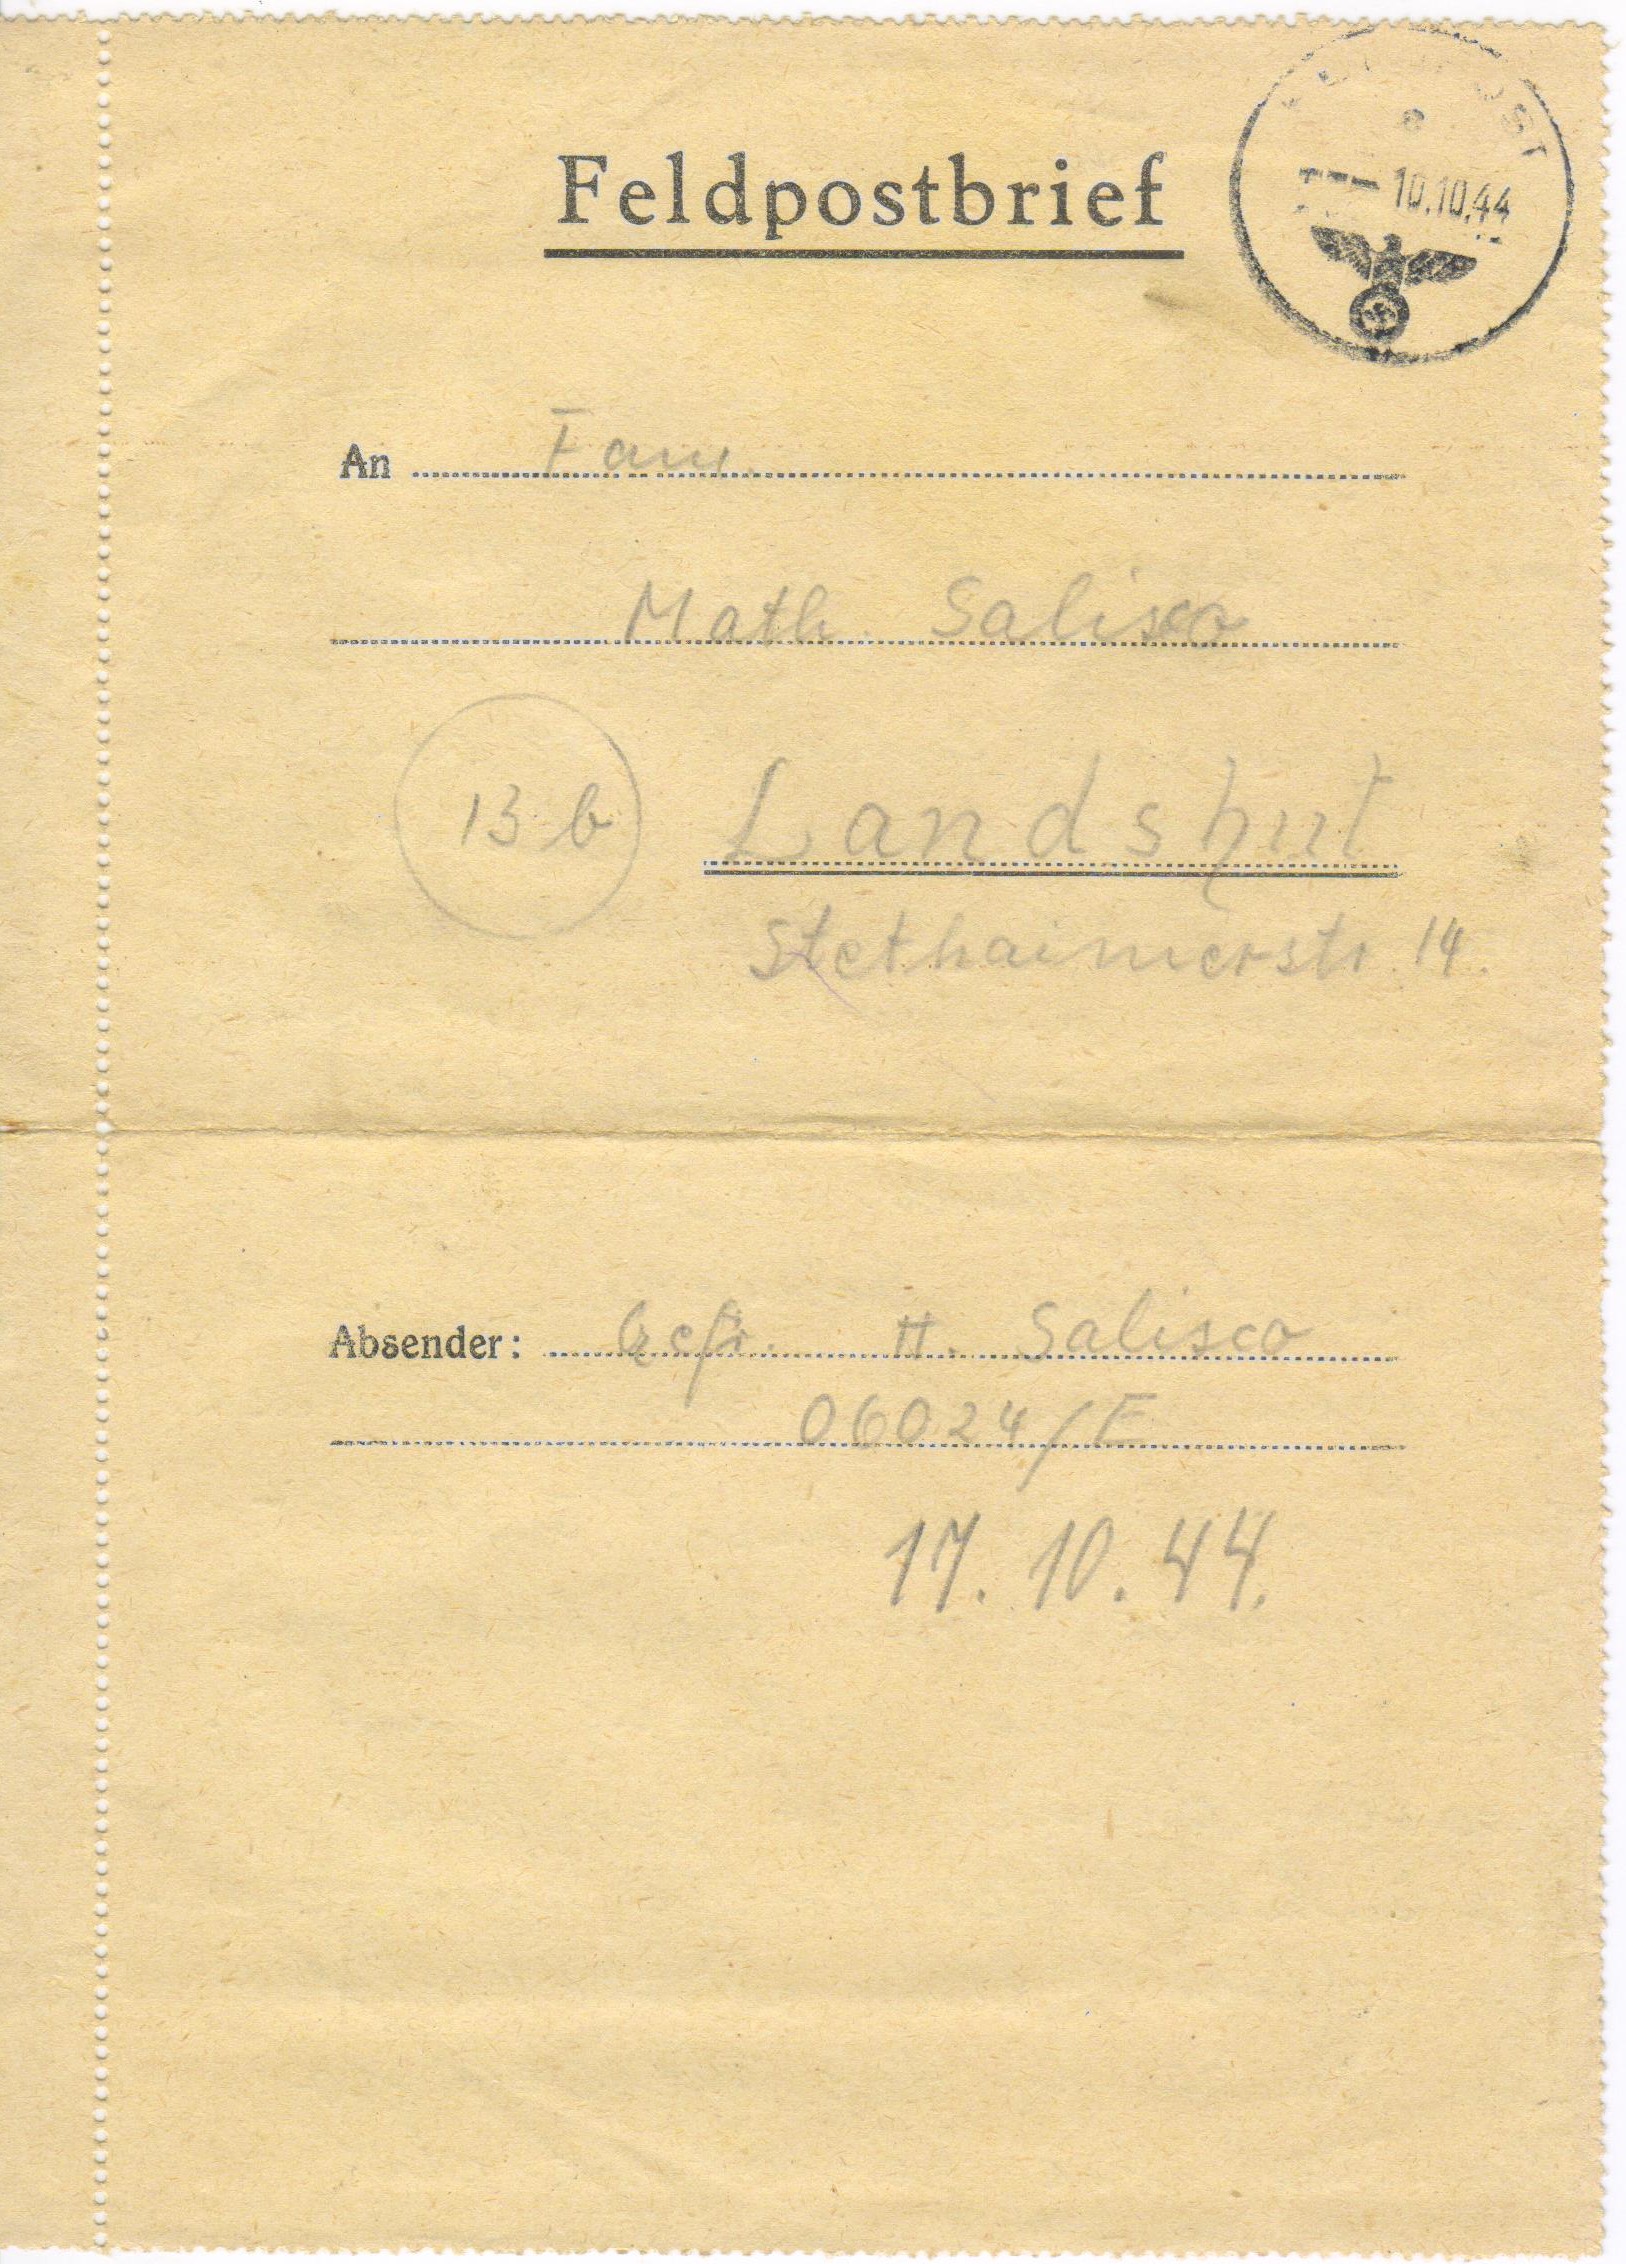 Feldpostbrief
10.10.44
An Fam.
Math. Salisco
13 b Landshut
Stethaimerstr. 14.
Absender: Gefr. H. Salisco
06024/E
17.10.44.